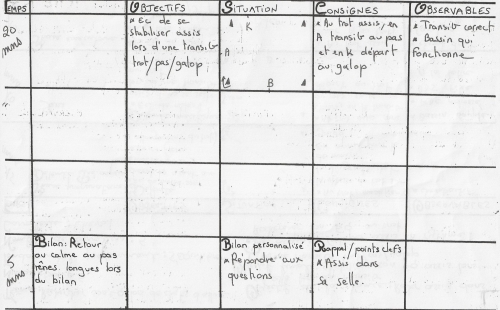 EMPS
OBJECTIFS
SITUATION
CONSIGNES
OBSERVABLES
20
mns
* EC de se
stabiliser assis
lors d'une transit°
trot/pas/galop
K
A
B
* Au trot assis, en
A transit° au pas
et en K départ
au galop
* Transit° correct
* Bassin qui
fonctionne
5
mns
Bilan: Retour
au calme au pas
rênes longues lors
du bilan
Bilan personnalisé
* Répondre aux
questions
Rappel/points clefs
* Assis dans
sa selle.